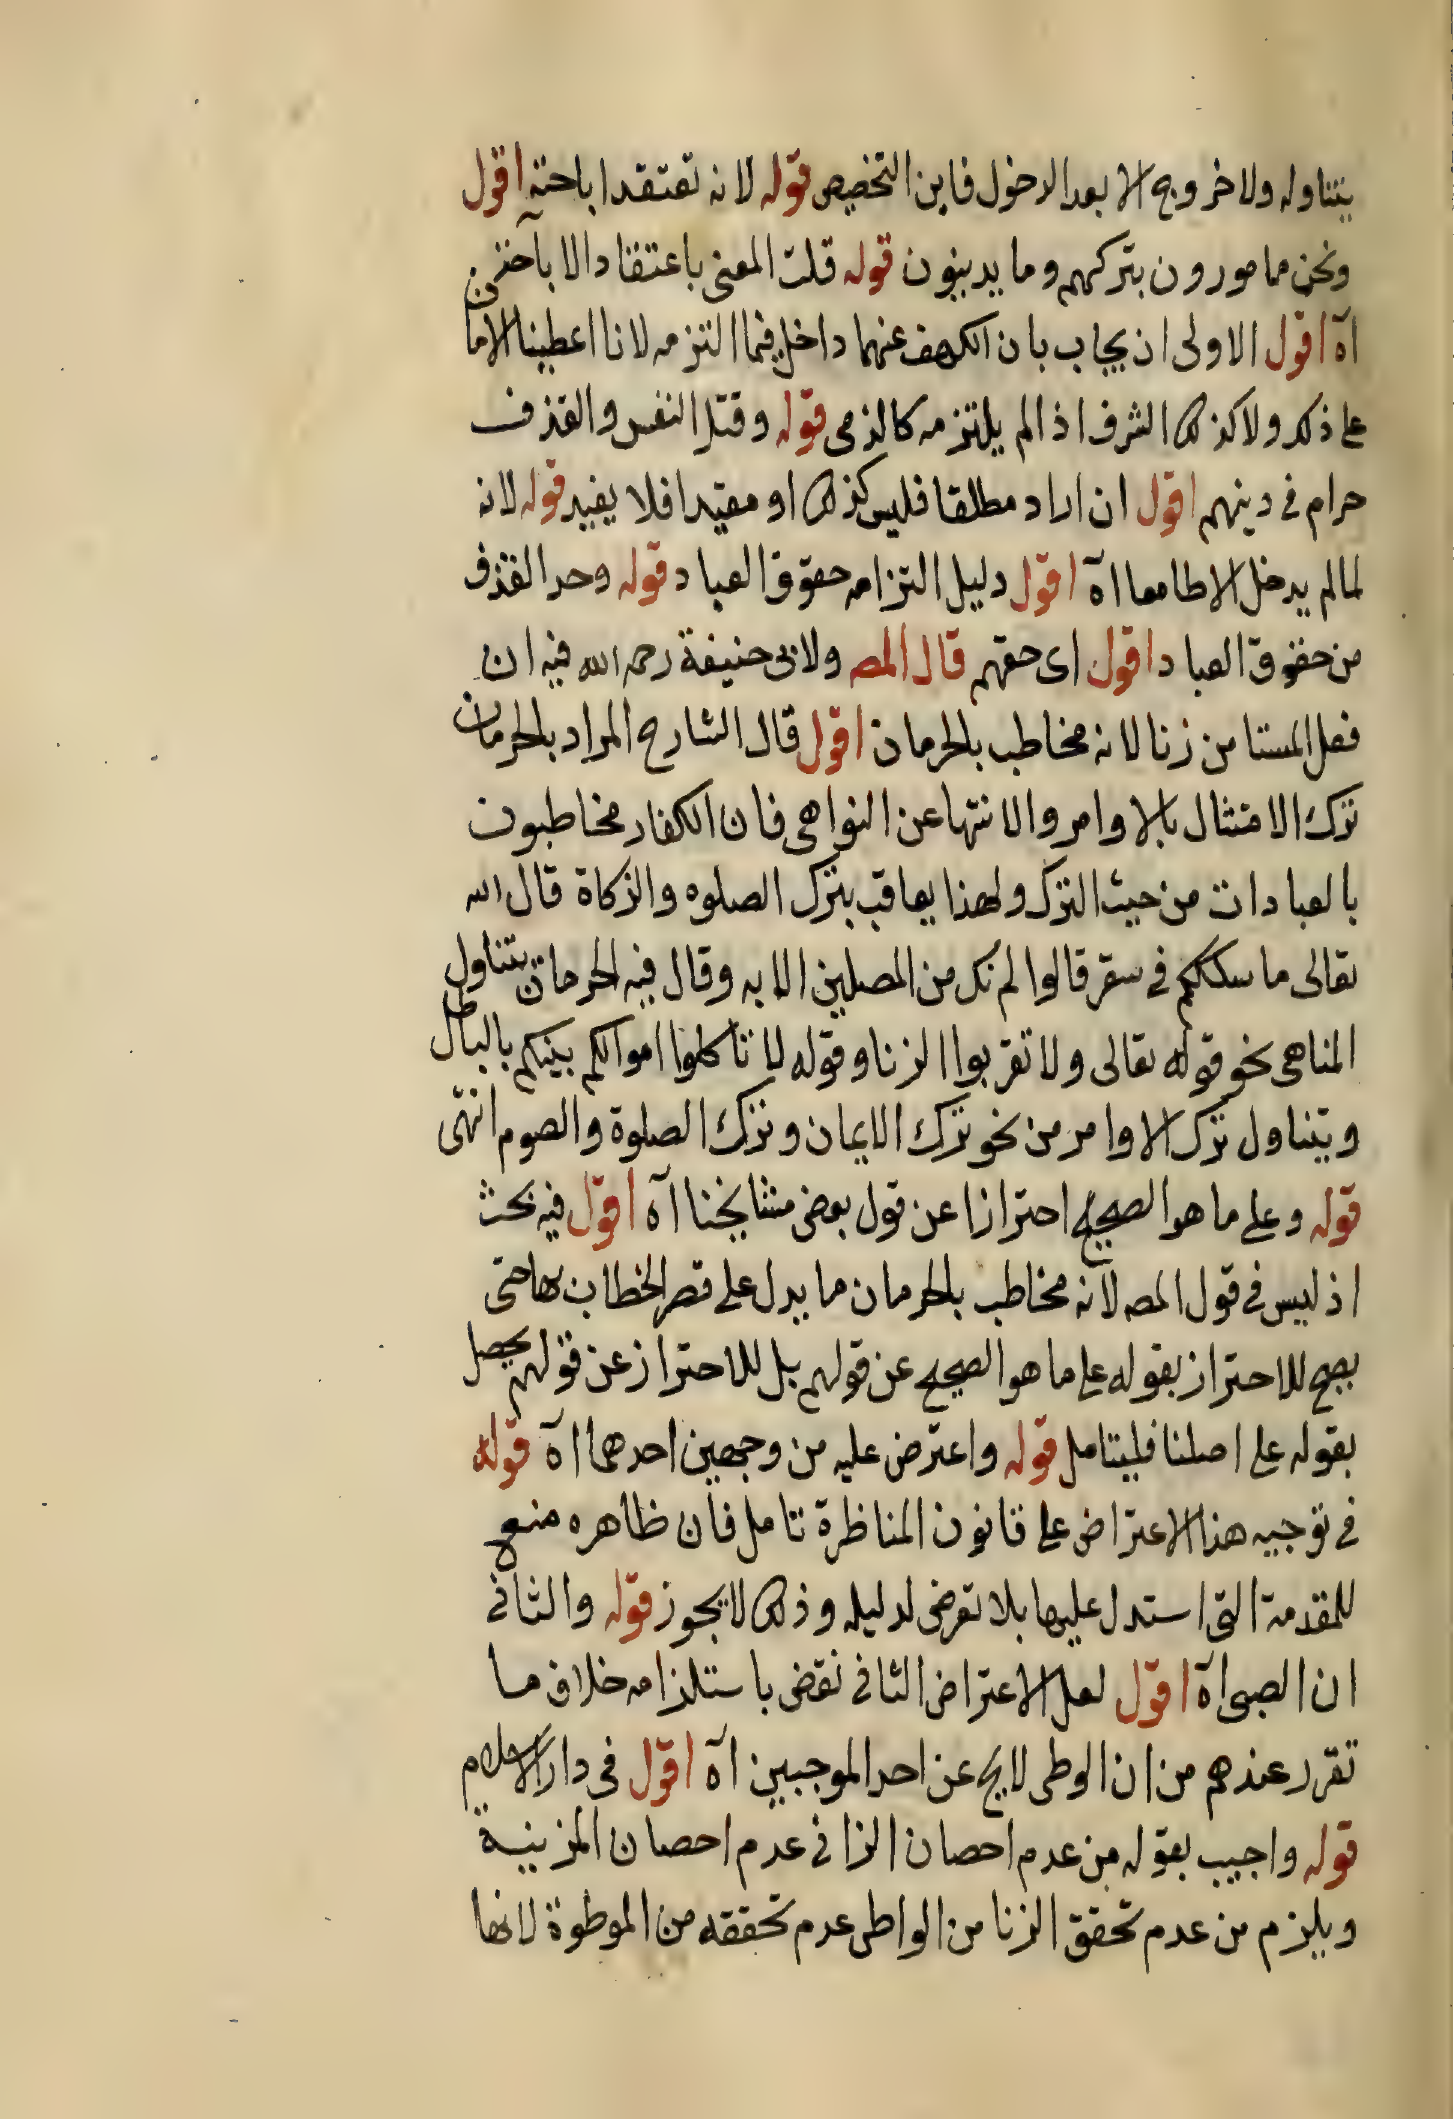 يتناوله ولا خروج الا بعد الدخول فاين التخصيص قوله لانه تعتقد اباحته اقول
ونحن مامورون بتركهم وما يدينون قوله قلت المعنى باعتقاد الاباحة
آه اقول الاولى ان يجاب بان الكهف عنهما داخل فيما التزمه لانا اعطينا الامان
على ذلك ولا كذلك الشرف اذا لم يلتزمه كالذمى قوله وقتل النفس والقذف
حرام فى دينهم اقول ان اراد مطلقا فليس كذلك او مقيدا فلا يفيد قوله لانه
لما لم يدخل الا طامعا آه اقول دليل التزامه حقوق العباد قوله وحد القذف
من حقوق العباد اقول اى حقهم قال المص ولابى حنيفة رحمه الله فيه ان
فعل المستامن زنا لانه مخاطب بالحرمان اقول قال الشارح المراد بالحرمان
ترك الامتثال بالاوامر والانتها عن النواهى فان الكفار مخاطبون
بالعبادات من حيث الترك ولهذا يعاقب بترك الصلوه والزكاة قال الله
تعالى ما سلككم فى سقر قالوا لم نك من المصلين الايه وقال فيه الحرمان يتناول
المناهى نحو قوله تعالى ولا تقربوا الزنا وقوله لا تاكلوا اموالكم بينكم بالباطل
ويتناول ترك الاوامر من نحو ترك الايمان وترك الصلوة والصوم انتهى
قوله وعلى ما هو الصحيح احترازا عن قول بعض مشايخنا آه اقول فيه بحث
اذ ليس فى قول المصه لانه مخاطب بالحرمان ما يدل على قصر الخطاب بها حتى
يصح للاحتراز بقوله على ما هو الصحيح عن قولهم بل للاحتراز عن قولهم يحصل
بقوله على اصلنا فليتامل قوله واعترض عليه من وجهين احدهما آه قوله
فى توجيه هذا الاعتراض على قانون المناظرة تامل فان ظاهره منع
للمقدمة التى استدل عليها بلا تعرض لدليله وذلك لا يجوز قوله والثانى
ان الصبى آه اقول لعل الاعتراض الثانى نقض باستلزامه خلاف ما
تقرر عندهم من ان الوطى لايخ عن احد الموجبين آه اقول فى دار الاسلام
قوله واجيب بقوله من عدم احصان الزانى عدم احصان المزنية
ويلزم من عدم تحقق الزنا من الواطى عدم تحققه من الموطوة لانها